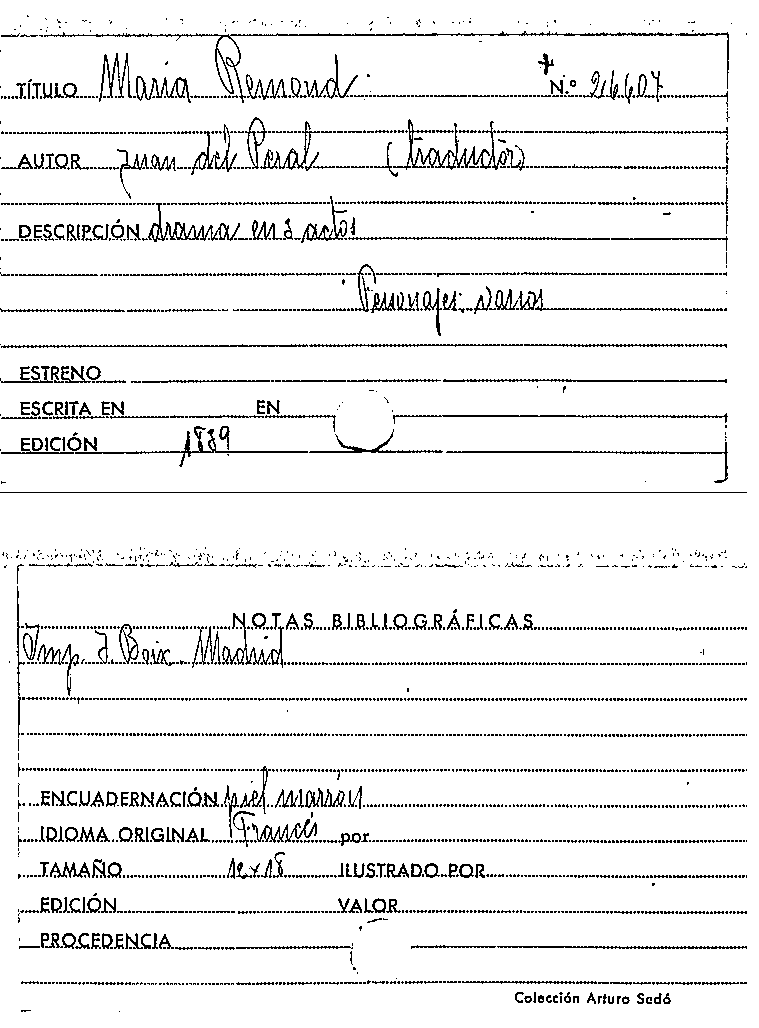 TÍTULO Maria Remond. N.º 26607
AUTOR Juan del Peral (traductor)
DESCRIPCIÓN drama en 3 actos
Personajes: varios
ESTRENO
ESCRITA EN EN
EDICIÓN 1839
NOTAS BIBLIOGRÁFICAS
Imp. J. Boix. Madrid
ENCUADERNACIÓN piel marrón
IDIOMA ORIGINAL Francés por
TAMAÑO 12x18 ILUSTRADO POR
EDICIÓN VALOR
PROCEDENCIA
Colección Arturo Sedó